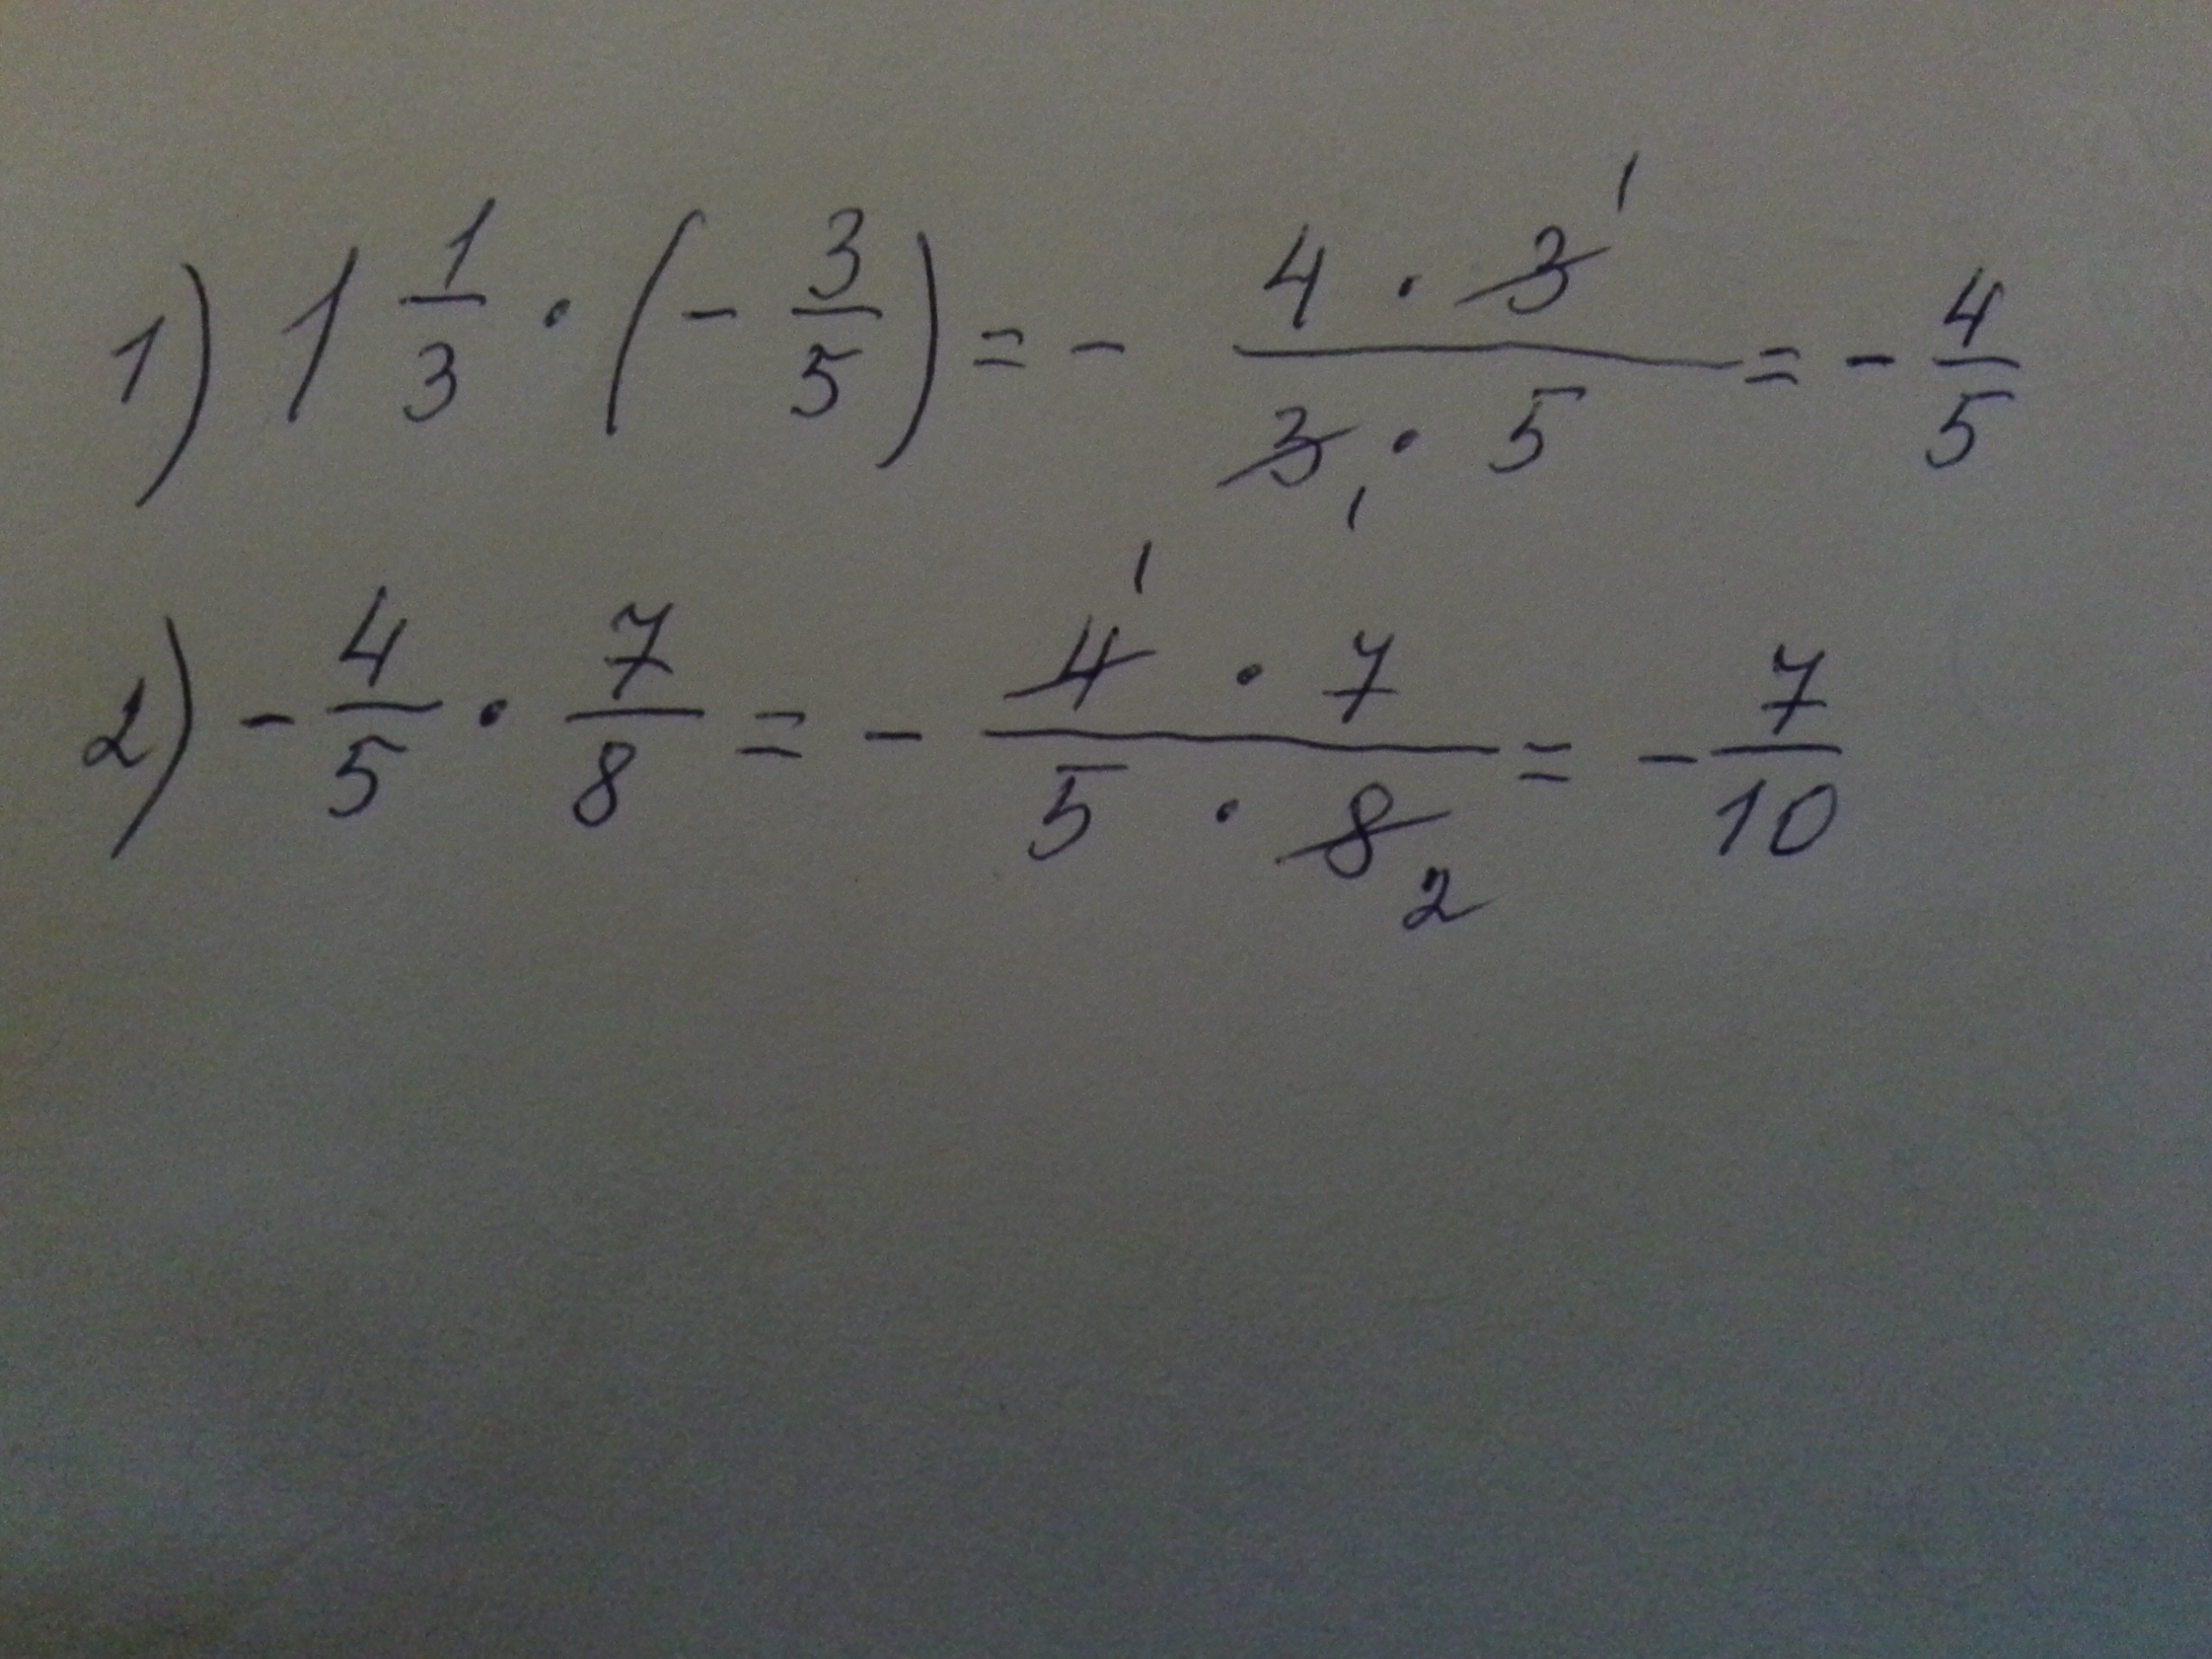 1) 1 1/3 · (- 3/5) = - (4 · 3̸ ¹)/(3̸ ₁ · 5) = - 4/5
2) - 4/5 · 7/8 = - (4̸ ¹ · 7)/(5 · 8̸ ₂) = - 7/10